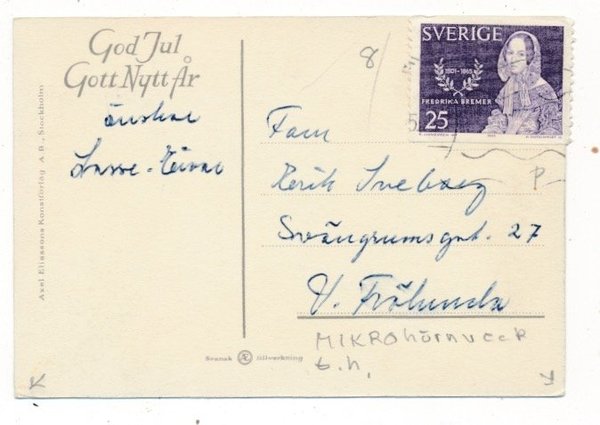 God Jul
Gott Nytt År
önskar
Lasse-
8/
SVERIGE
1801-1865
FREDRIKA BREMER
25
Fam
Sveborg
P-
27
V. Frölunda
MIKROhörnveck
t.h.
Axel Eliassons Konstförlag A.B., Stockholm
Svensk Æ tillverkning